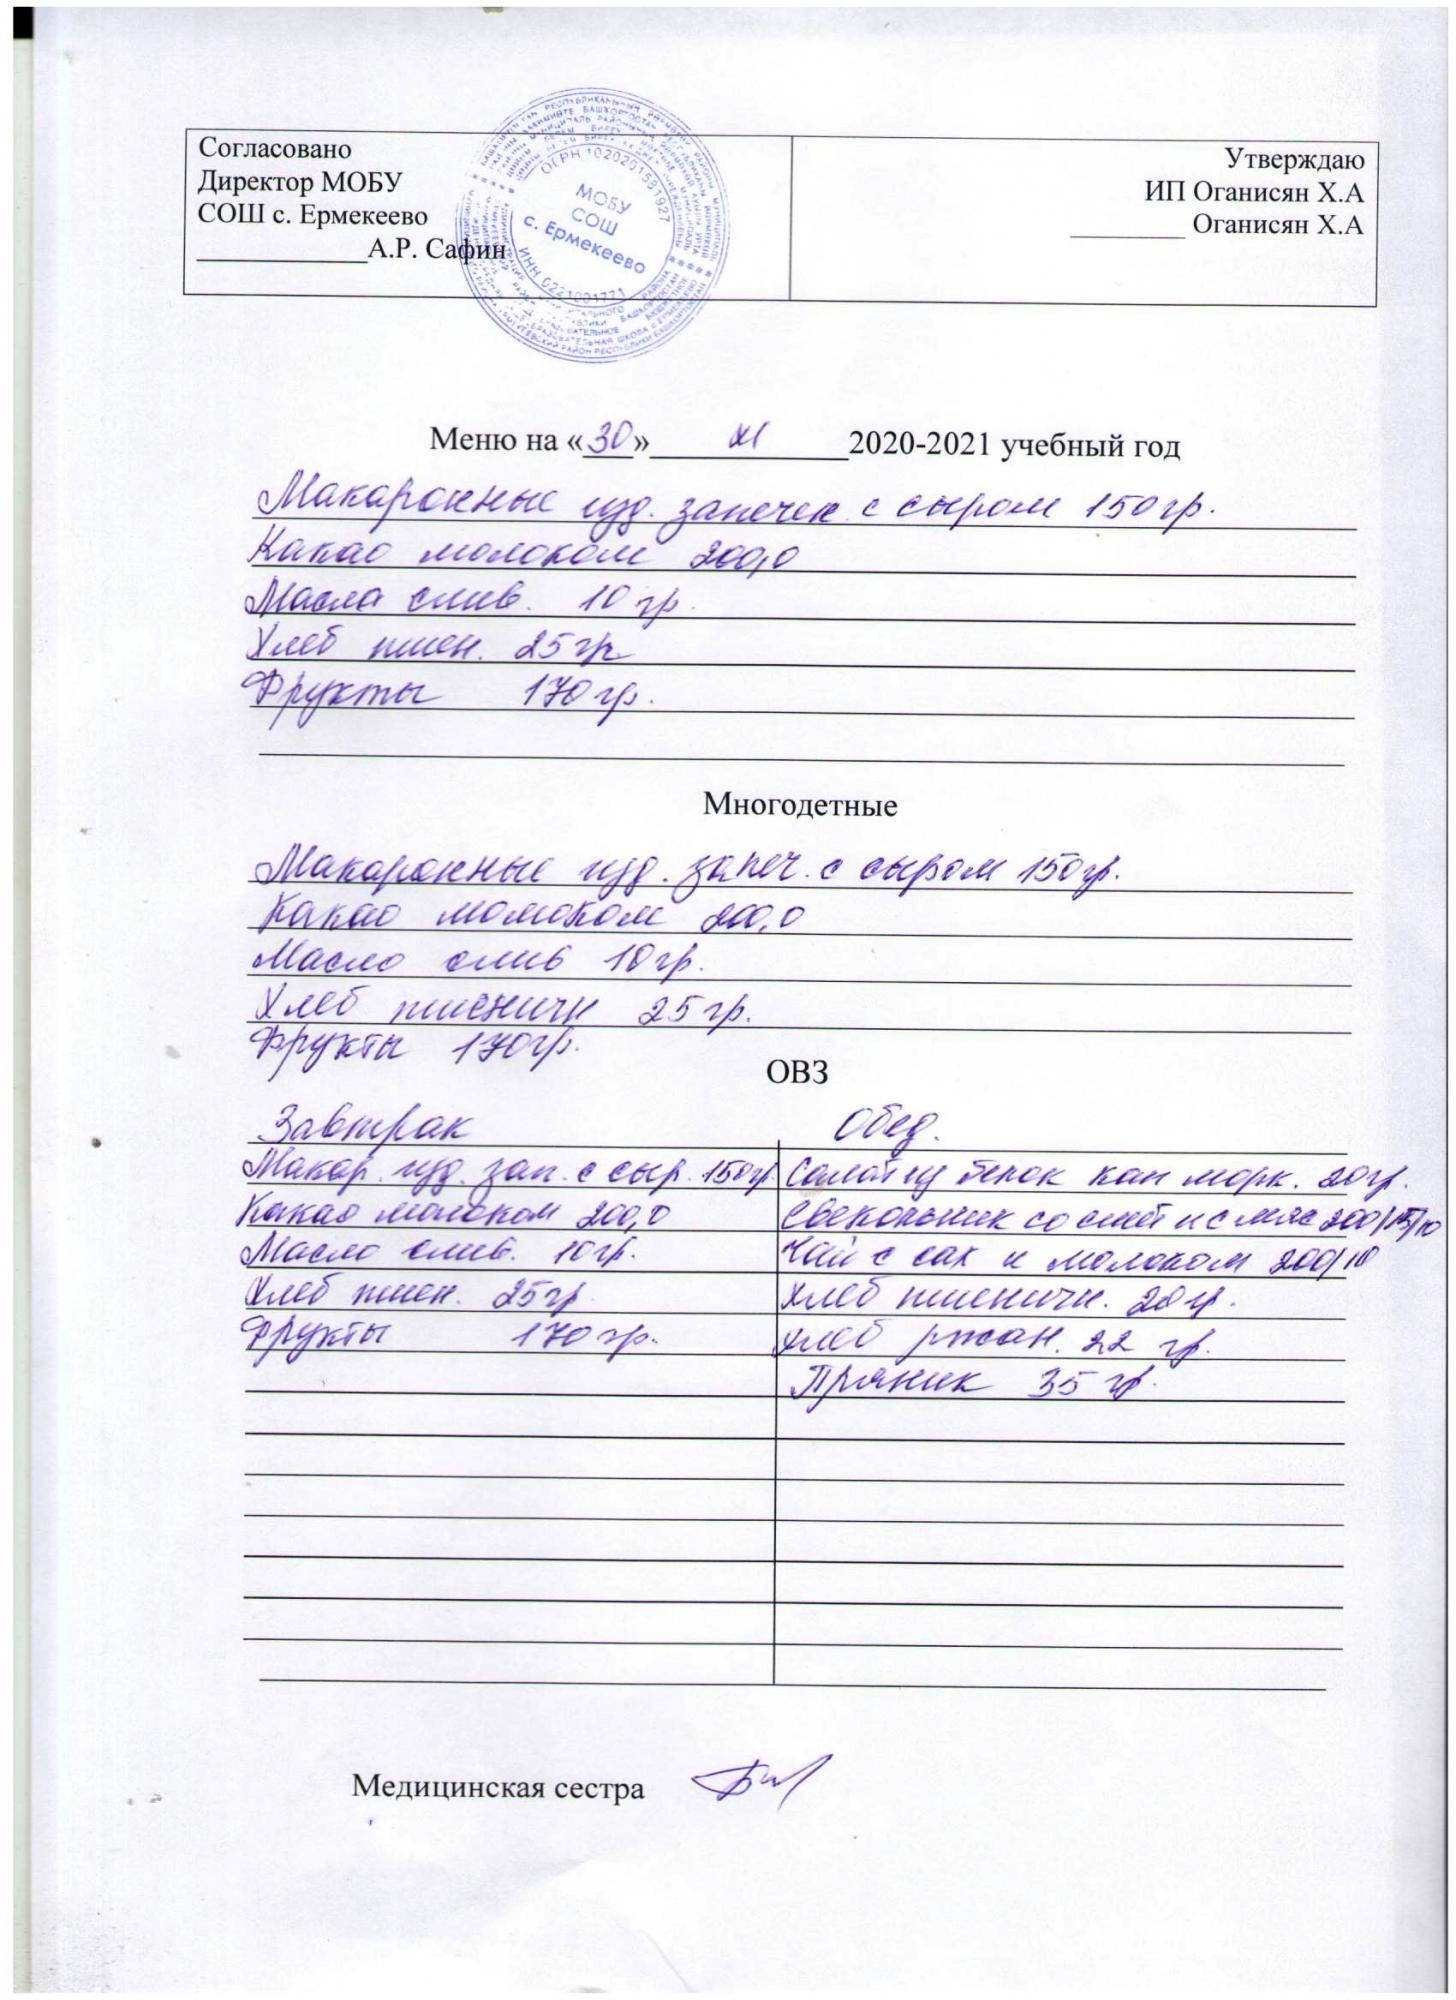 Согласовано
Директор МОБУ
СОШ с. Ермекеево
____________А.Р. Сафин
Утверждаю
ИП Оганисян Х.А
________ Оганисян Х.А
ОГРН 1020201581927
МОБУ
СОШ
с. Ермекеево
ИНН 0221001771
Меню на «30» XI 2020-2021 учебный год
Макаронные изд. запечек с сыром 150гр.
Какао молоком 200,0
Масла слив. 10 гр.
Хлеб пшен. 25 гр
Фрукты 170 гр.
Многодетные
Макаронные изд. запеч. с сыром 150гр.
Какао молоком 200,0
Масло слив 10 гр.
Хлеб пшеничн 25 гр.
Фрукты 170гр.
ОВЗ
Завтрак
Макар. изд. зап. с сыр. 150гр.
Какао молоком 200,0
Масло слив. 10гр.
Хлеб пшен. 25гр.
Фрукты 170 гр.
Обед.
Салат из белок кап морк. 20гр.
Свекольник со смет и с мяс 200/15/10
Чай с сах и молоком 200/10
Хлеб пшеничн. 20 гр.
Хлеб ржан. 22 гр.
Пряник 35 гр.
Медицинская сестра